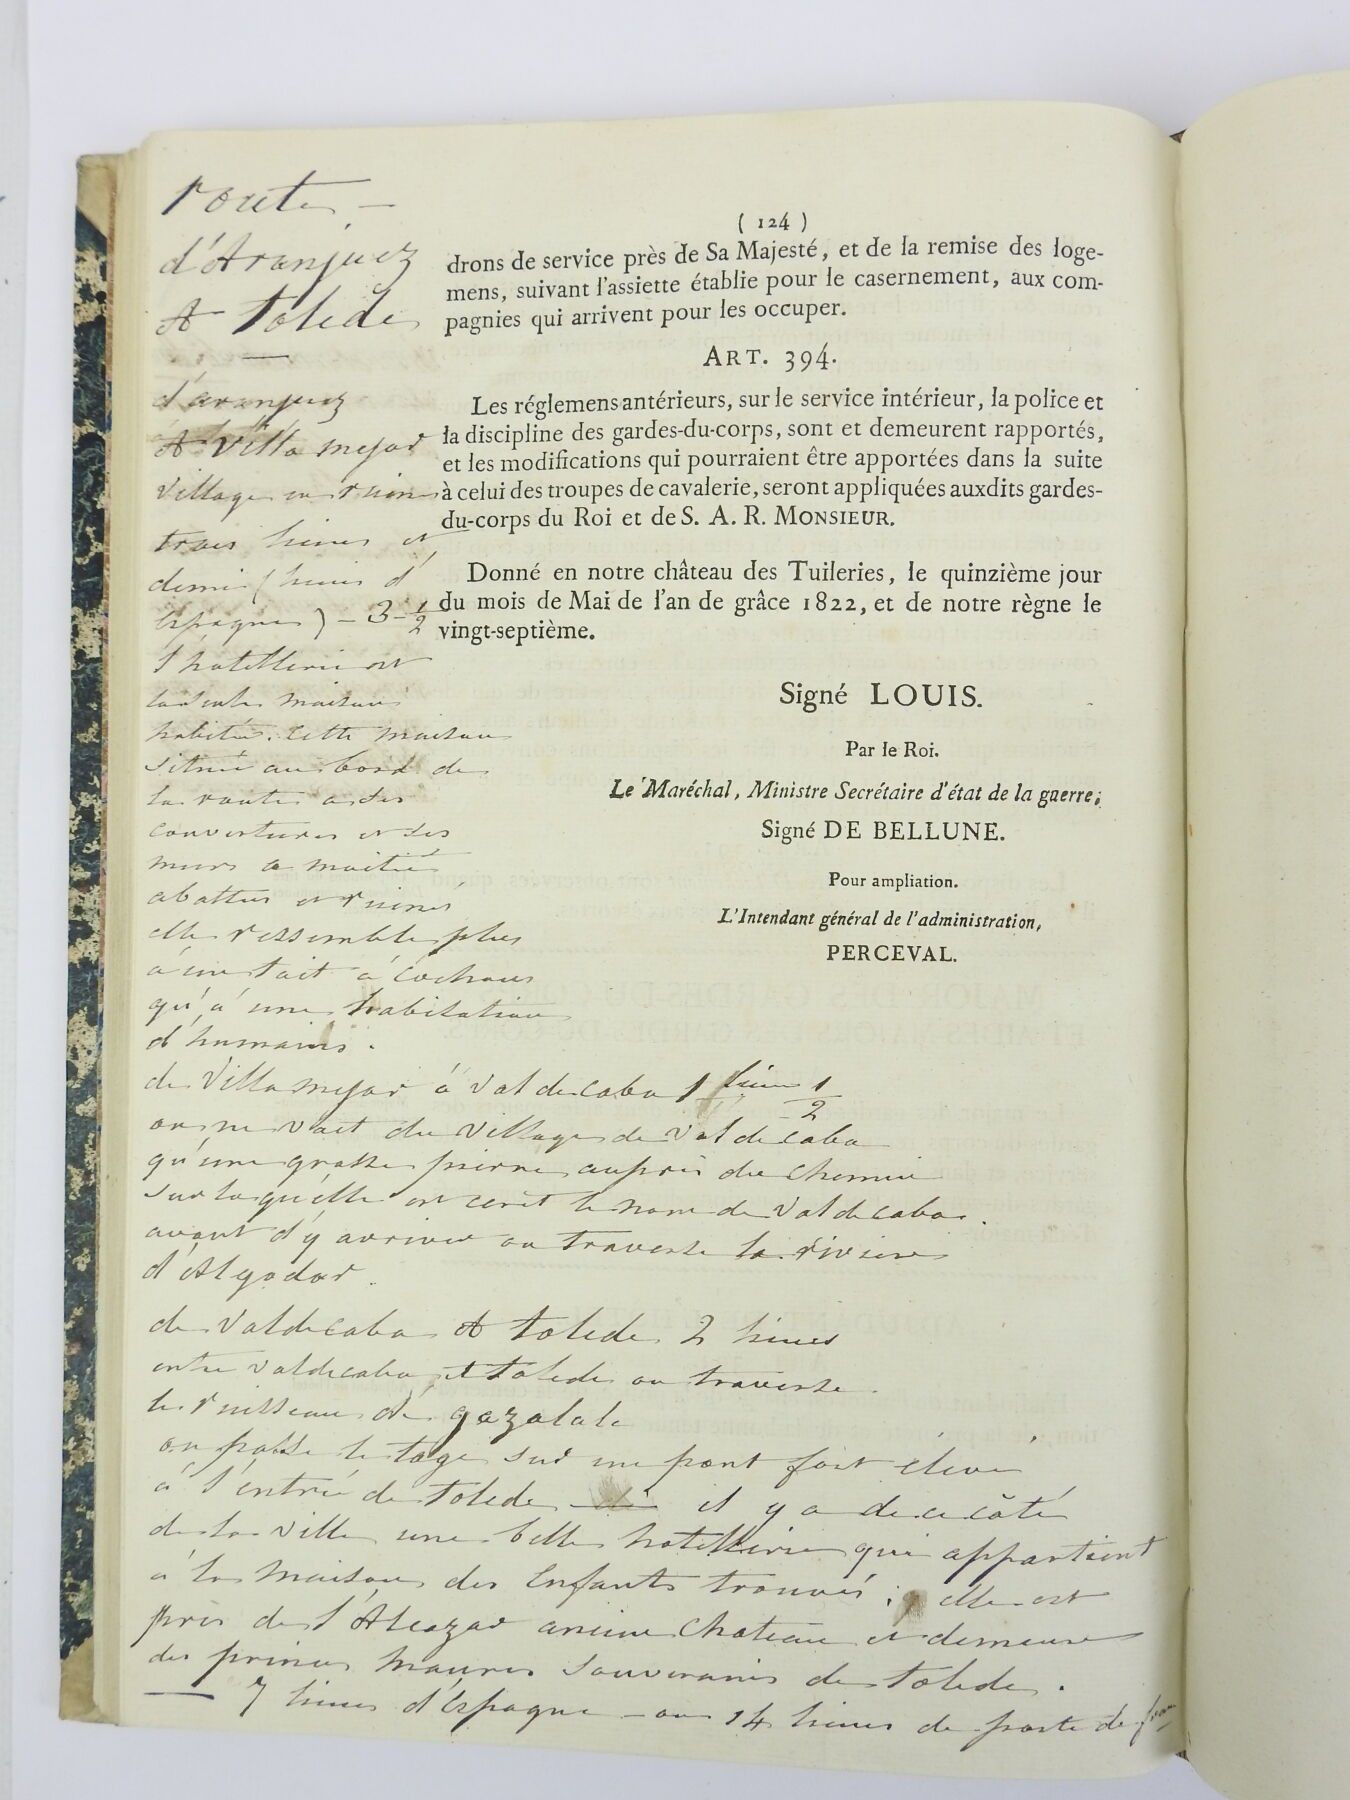 ( 124 )
drons de service près de Sa Majesté, et de la remise des loge-
mens, suivant l'assiette établie pour le casernement, aux com-
pagnies qui arrivent pour les occuper.
ART. 394.
Les réglemens antérieurs, sur le service intérieur, la police et
la discipline des gardes-du-corps, sont et demeurent rapportés,
et les modifications qui pourraient être apportées dans la suite
à celui des troupes de cavalerie, seront appliquées auxdits gardes-
du-corps du Roi et de S. A. R. MONSIEUR.
Donné en notre château des Tuileries, le quinzième jour
du mois de Mai de l'an de grâce 1822, et de notre règne le
vingt-septième.
Signé LOUIS.
Par le Roi.
Le Maréchal, Ministre Secrétaire d'état de la guerre;
Signé DE BELLUNE.
Pour ampliation.
L'Intendant général de l'administration,
PERCEVAL.
route
d'Aranjuez
A tolede
d'aranjuez
A Villa mejor
village en ruines
trois lieues et
demi (lieues d'
Espagne) - 3 - 1/2
l'hotellerie est
la seule maison
habitée. cette maison
située au bord de
la route a ses
couvertures et ses
murs a moitié
abattus et ruinés
elle ressemble plus
à un tait à cochons
qu'à une habitation
d'humains.
de Villa mejor à Val de caba 1 lieue 1/2
on ne voit du village de Val de caba
qu'une grosse pierre auprès du chemin
sur laquelle on ecrit le nom de Val de caba.
avant d'y arriver on traverse la riviere
d'Algodor.
de Val de caba A tolede 2 lieues
entre val de caba et tolede on traverse
le ruisseau de gazalate
on passe le tage sur un pont fort élevé
à l'entrée de tolede il y a de ce côté
de la ville une belle hotellerie qui appartient
à la maison des Enfants trouvés; elle est
près de l'Alcazar ancien Chateau et demeure
des princes maures souverains de tolede.
— 7 lieues d'Espagne — ou 14 lieues de poste de